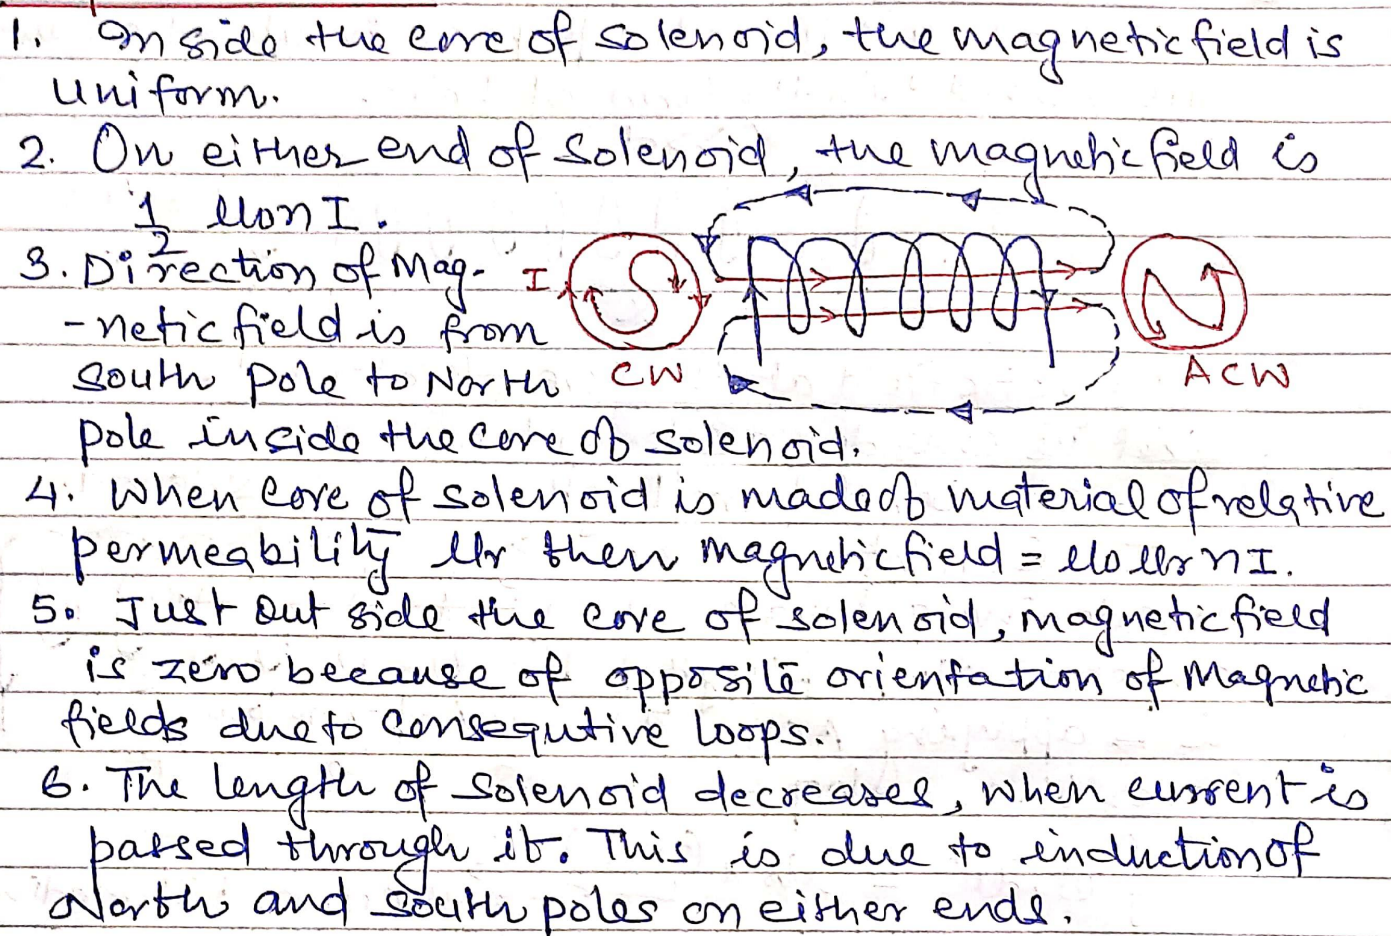 1. Inside the core of solenoid, the magnetic field is
uniform.
2. On either end of solenoid, the magnetic field is
1/2 μ0nI.
3. Direction of Mag-
-netic field is from
south pole to North
I S N
CW ACW
pole inside the core of solenoid.
4. When core of solenoid is made of material of relative
permeability μr then magnetic field = μ0μrnI.
5. Just out side the core of solenoid, magnetic field
is zero because of opposite orientation of Magnetic
fields due to consequtive loops.
6. The length of solenoid decreases, when current is
passed through it. This is due to induction of
North and south poles on either ends.